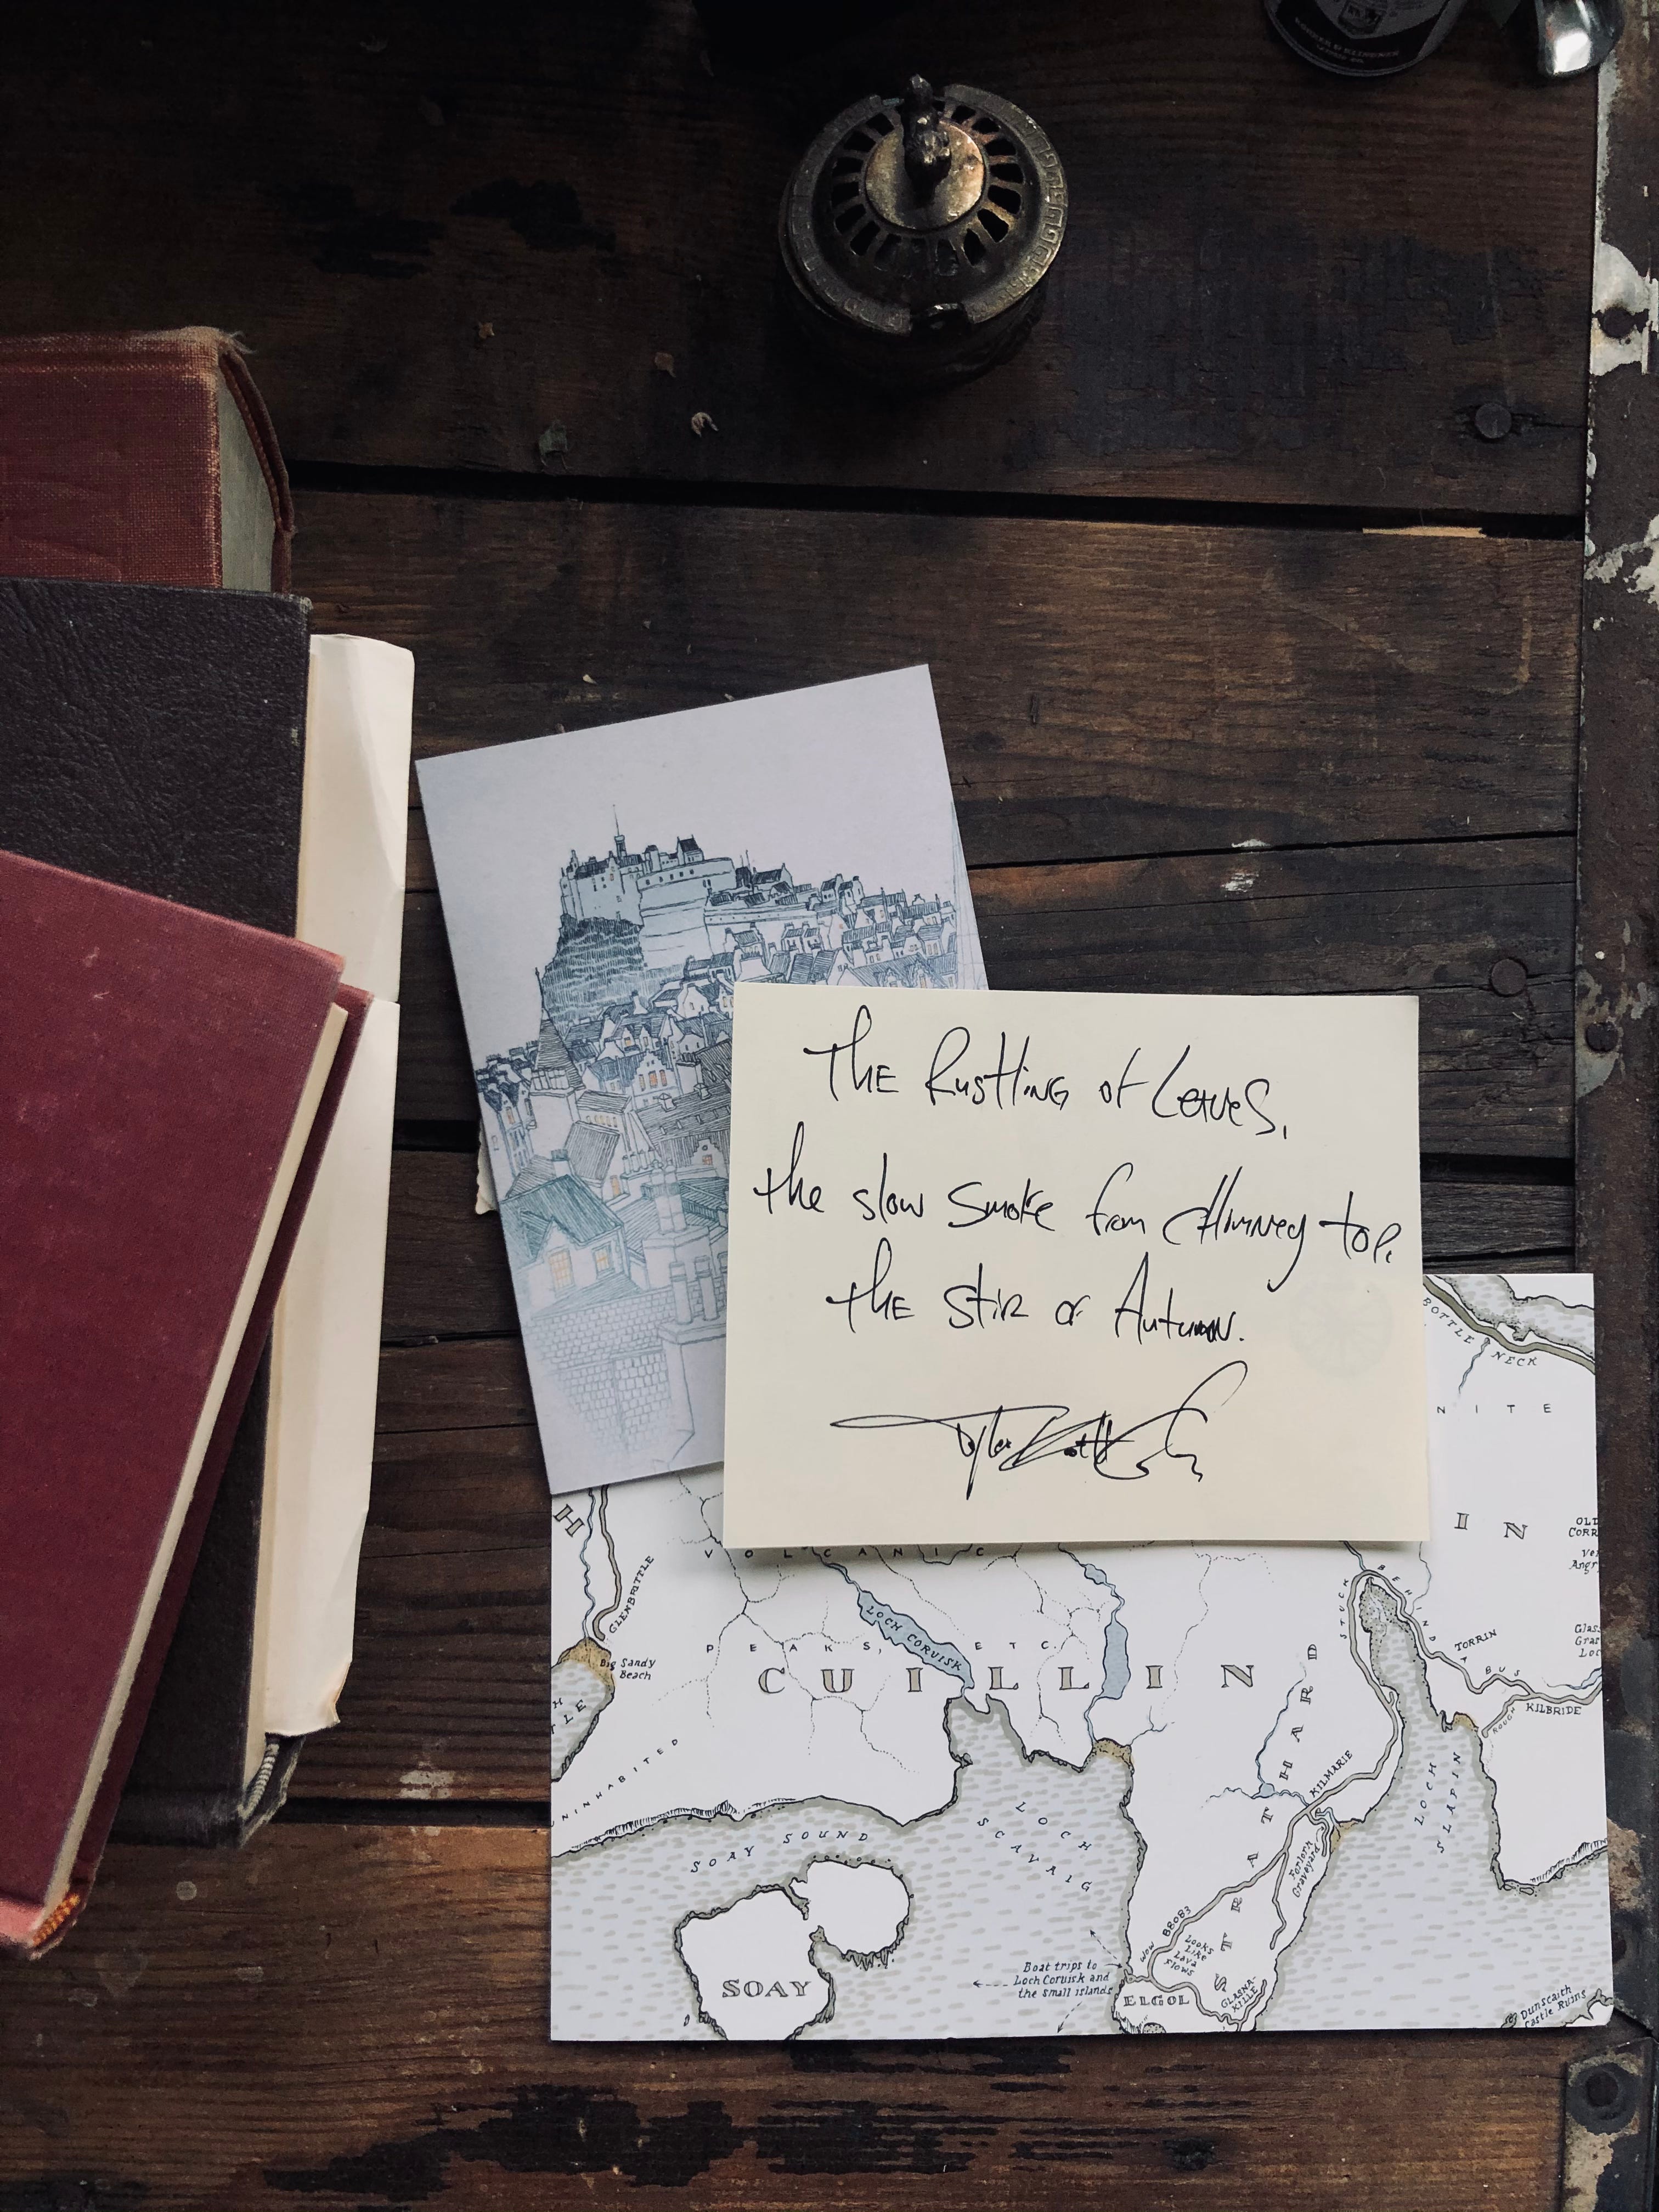 The Rustling of Leaves,
the slow smoke from chimney top,
the stir of Autumn.
BOTTLE NECK
NITE
IN
OLD
H
GLENBRITTLE
Big Sandy
Beach
VOLCANIC
PEAKS, ETC.
LOCH CORUISK
CUILLIN
STUCK BEHIND A BUS
TORRIN
KILBRIDE
ROUGH
STRATHAIRD
KILMARIE
LOCH
SLAPIN
NINHABITED
SOAY SOUND
LOCH
SCAVAIG
Forlorn
Graveyard
B8083
WOW
Looks
Like
Lava
Flows
SOAY
Boat trips to
Loch Coruisk and
the small islands
ELGOL
GLASNA-
KILLE
Dunscaith
Castle Ruins